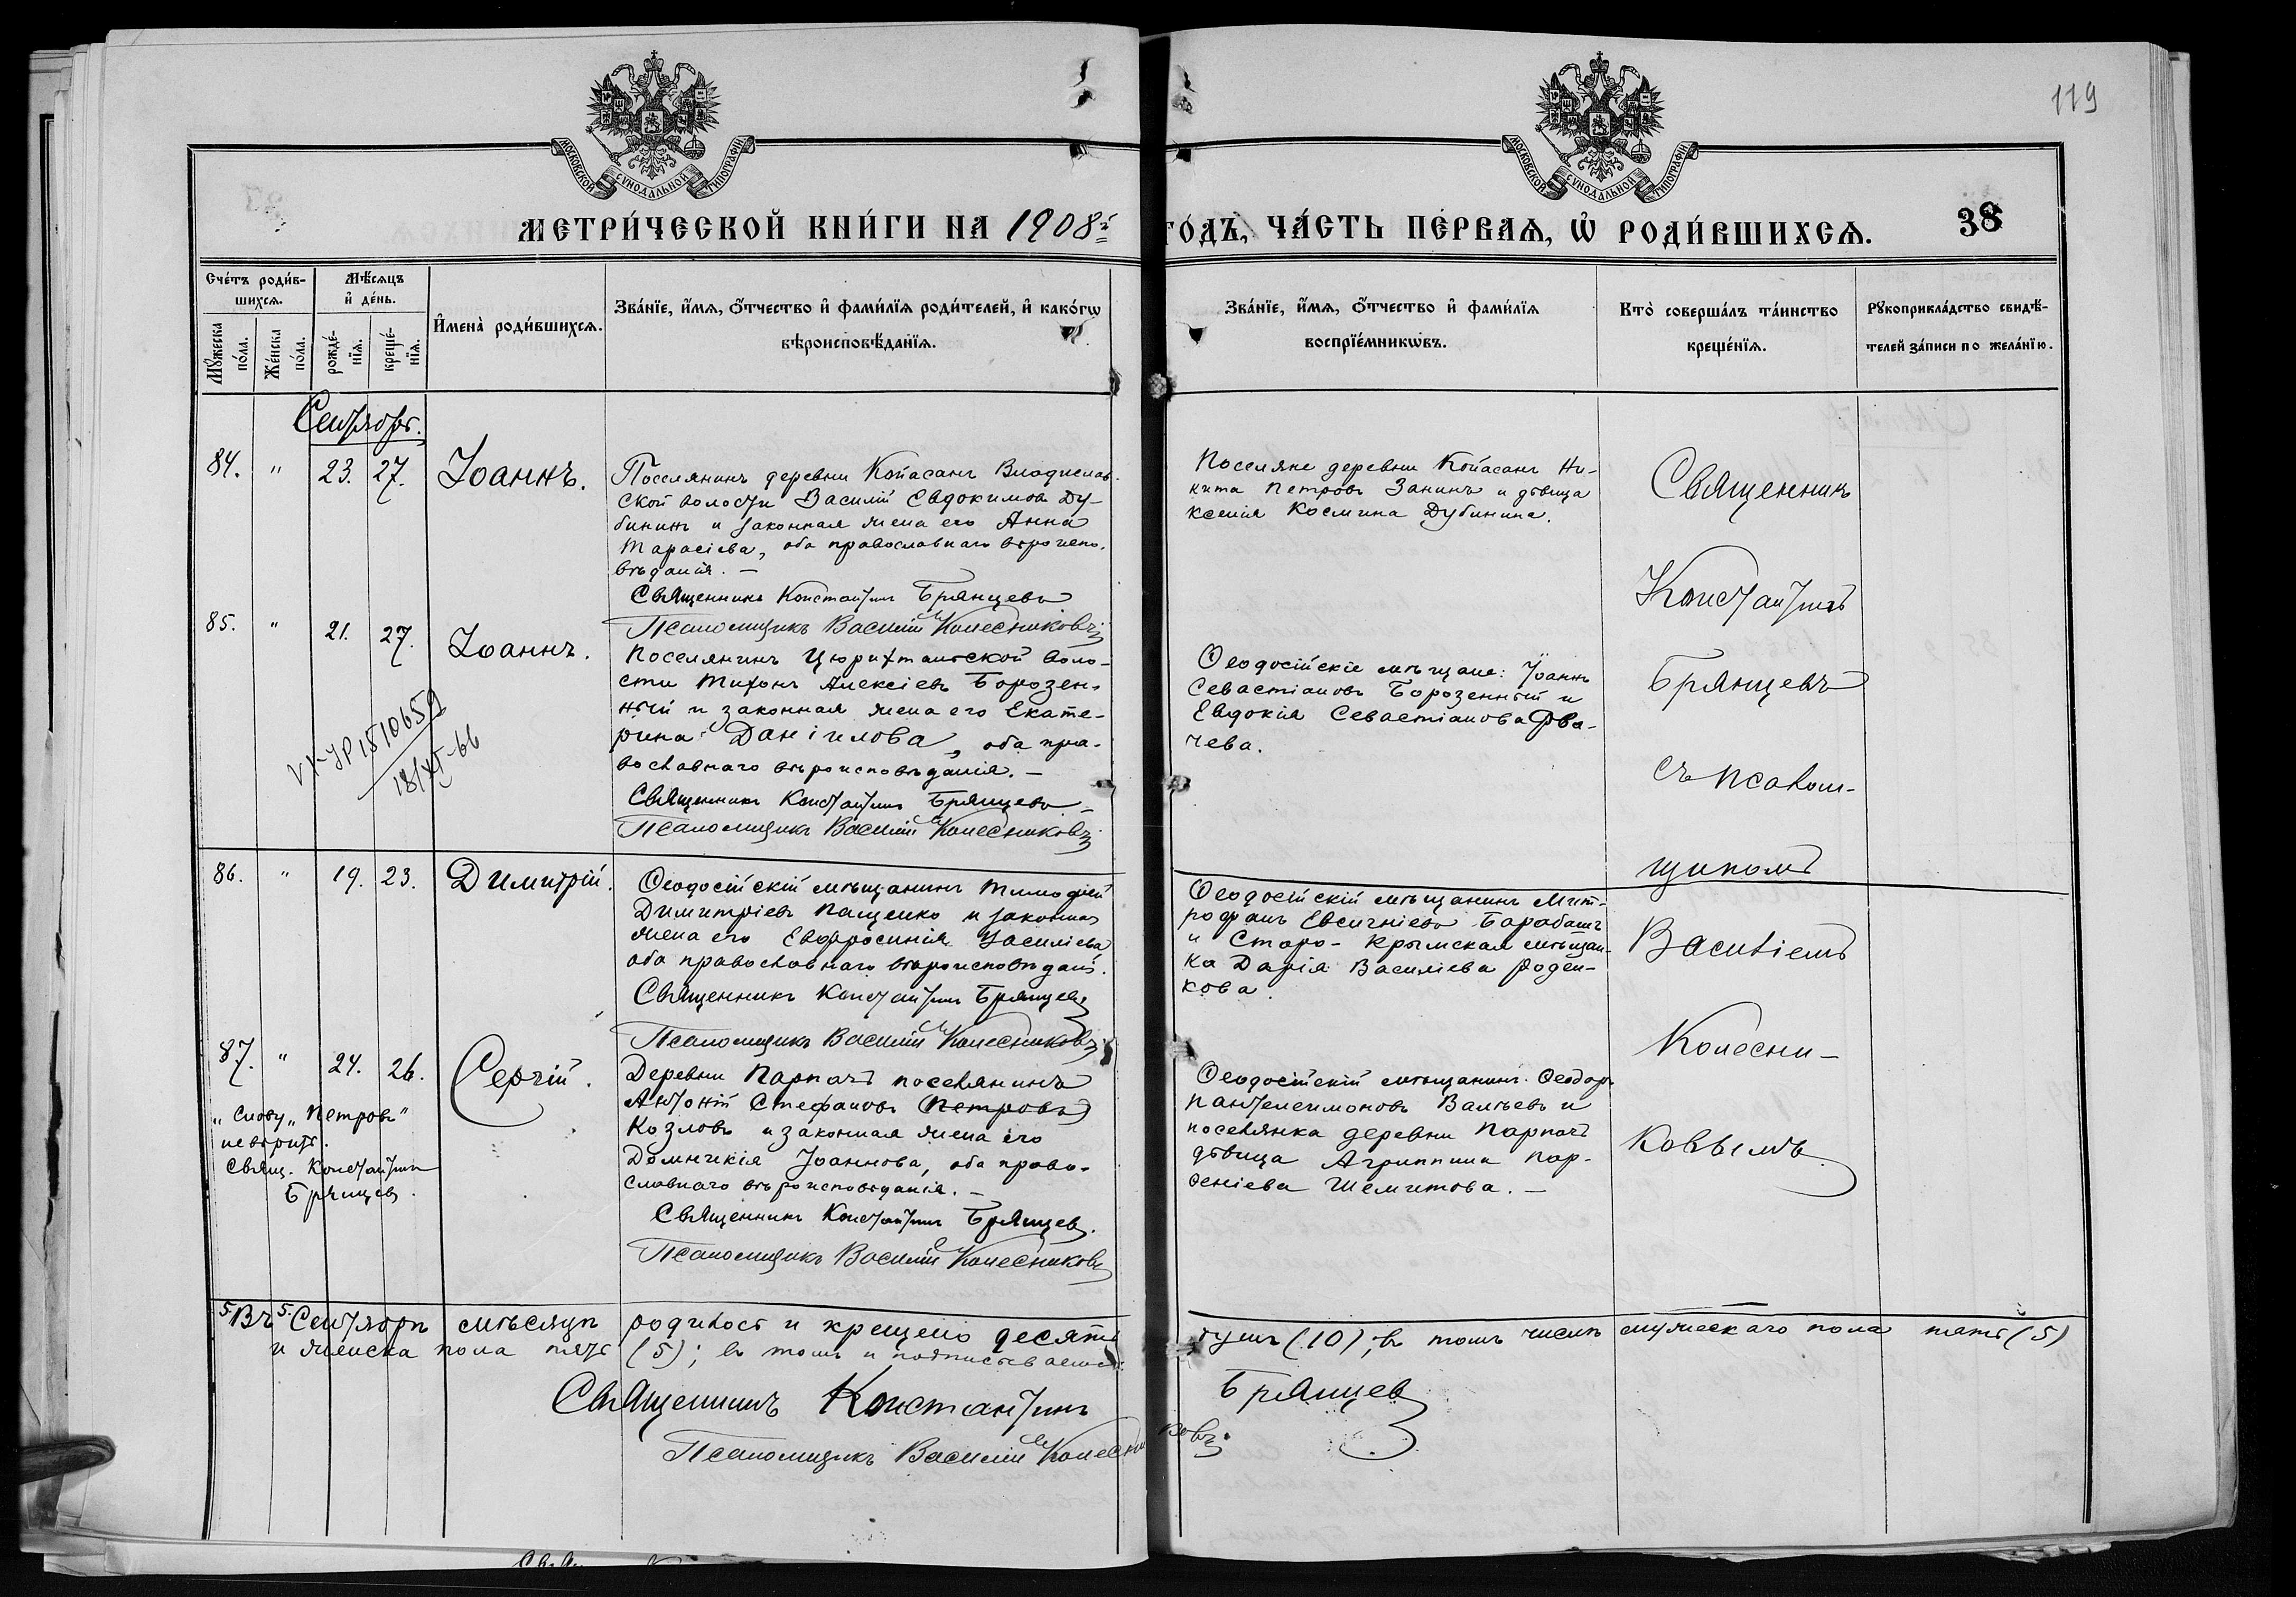 119
МОСКОВСКОЙ СУНОДАЛЬНОЙ ТИПОГРАФІИ
МОСКОВСКОЙ СУНОДАЛЬНОЙ ТИПОГРАФІИ
МЕТРИ́ЧЕСКОЙ КНИ́ГИ НА 1908й
ГО́ДЪ, ЧА́СТЬ ПЕ́РВАѦ, Ѡ҆ РОДИ́ВШИХСѦ. 38
Сче́тъ роди́в-
шихсѧ.
Мѣ́сѧцъ
и҆ де́нь.
Мꙋ́жеска
по́ла.
Же́нска
по́ла.
рожде́-
нїѧ.
креще́-
нїѧ.
И҆мена̀ роди́вшихсѧ.
Зва́нїе, и҆́мѧ, ѻ҆́тчество и҆ фами́лїѧ роди́телей, и҆ како́гѡ
вѣроисповѣ́данїѧ.
Зва́нїе, и҆́мѧ, ѻ҆́тчество и҆ фами́лїѧ
воспрїе́мникѡвъ.
Кто̀ соверша́лъ та́инство
креще́нїѧ.
Рꙋкоприкла́дство свидѣ́-
телей за́писи по жела́нїю.
Сентябрь.
84. " 23. 27. Іоаннъ.
Поселянинъ деревни Копасанъ Владислав-
ской волости Василій Евдокимовъ Ду-
бининъ и законная жена его Анна
Тарасіева, оба православнаго вѣроиспо-
вѣданія. —
Священникъ Константинъ Брянцевъ
Псаломщикъ Василій Колесниковъ
Поселяне деревни Копасанъ Ни-
кита Петровъ Занинъ и дѣвица
Ксенія Космина Дубинина.
85. " 21. 27. Іоаннъ.
Поселянинъ Цюрихтальской воло-
сти Тихонъ Алексіевъ Борозен-
ный и законная жена его Екате-
рина Даніилова, оба пра-
вославнаго вѣроисповѣданія. —
Священникъ Константинъ Брянцевъ
Псаломщикъ Василій Колесниковъ
Ѳеодосійскіе мѣщане: Іоаннъ
Севастіановъ Борозенный и
Евдокія Севастіанова
чева.
1810659
18/XI-66
86. " 19. 23. Димитрій.
Ѳеодосійскій мѣщанинъ Тимоѳей
Димитріевъ Пащенко и законная
жена его Евфросинія Василіева
оба православнаго вѣроисповѣдані.
Священникъ Константинъ Брянцевъ
Псаломщикъ Василій Колесниковъ
Ѳеодосійскій мѣщанинъ Мит-
рофанъ Евсигніевъ Барабашъ
и Старо-Крымская мѣщан-
ка Дарія Василіева Роден-
кова.
87. " 24. 26. Сергій.
Деревни Парпачъ поселянинъ
Антоній Стефановъ (Петровъ)
Козловъ и законная жена его
Домникія Іоаннова, оба право-
славнаго вѣроисповѣданія. —
Священникъ Константинъ Брянцевъ.
Псаломщикъ Василій Колесниковъ
"Слову "Петровъ"
не вѣрить.
Свящ. Константинъ
Брянцевъ.
Ѳеодосійскій мѣщанинъ Ѳеодоръ
Пантелеимоновъ Валѣевъ и
поселянка деревни Парпачъ
дѣвица Агриппина Пар-
ѳеніева Шемитова. —
Священникъ
Константинъ
Брянцевъ
съ псалом-
щикомъ
Василіемъ
Колесни-
ковымъ
5. Въ 5. Сентябрѣ мѣсяцѣ родилось и крещено десять душъ (10); въ томъ числѣ мужескаго пола пять (5)
и женска пола пять (5); въ томъ и подписываемся:
Священникъ Константинъ Брянцевъ
Псаломщикъ Василій Колесниковъ